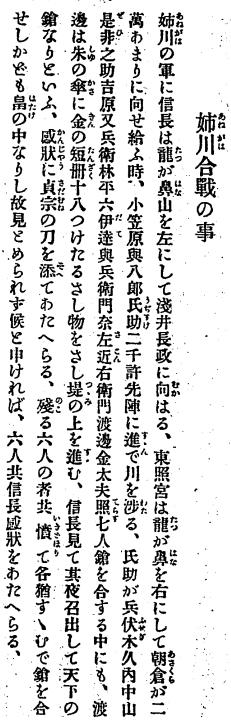 姉川合戰の事
姉川の軍に信長は龍が鼻山を左にして淺井長政に向はる、東照宮は龍が鼻を右にして朝倉が二
萬あまりに向せ給ふ時、小笠原與八郎氏助二千許先陣に進で川を渉る、氏助が兵伏木久內中山
是非之助吉原又兵衞林平六伊達與兵衞門奈左近右衞門渡邊金太夫照七人鎗を合する中にも、渡
邊は朱の傘に金の短册十八つけたるさし物をさし堤の上を進む、信長見て其夜召出して天下の
鎗なりといふ、感狀に貞宗の刀を添てあたへらる、殘る六人の者共憤て各猶すゝむで鎗を合
せしかども畠の中なりし故見とめられず候と申ければ、六人共信長感狀をあたへらる、